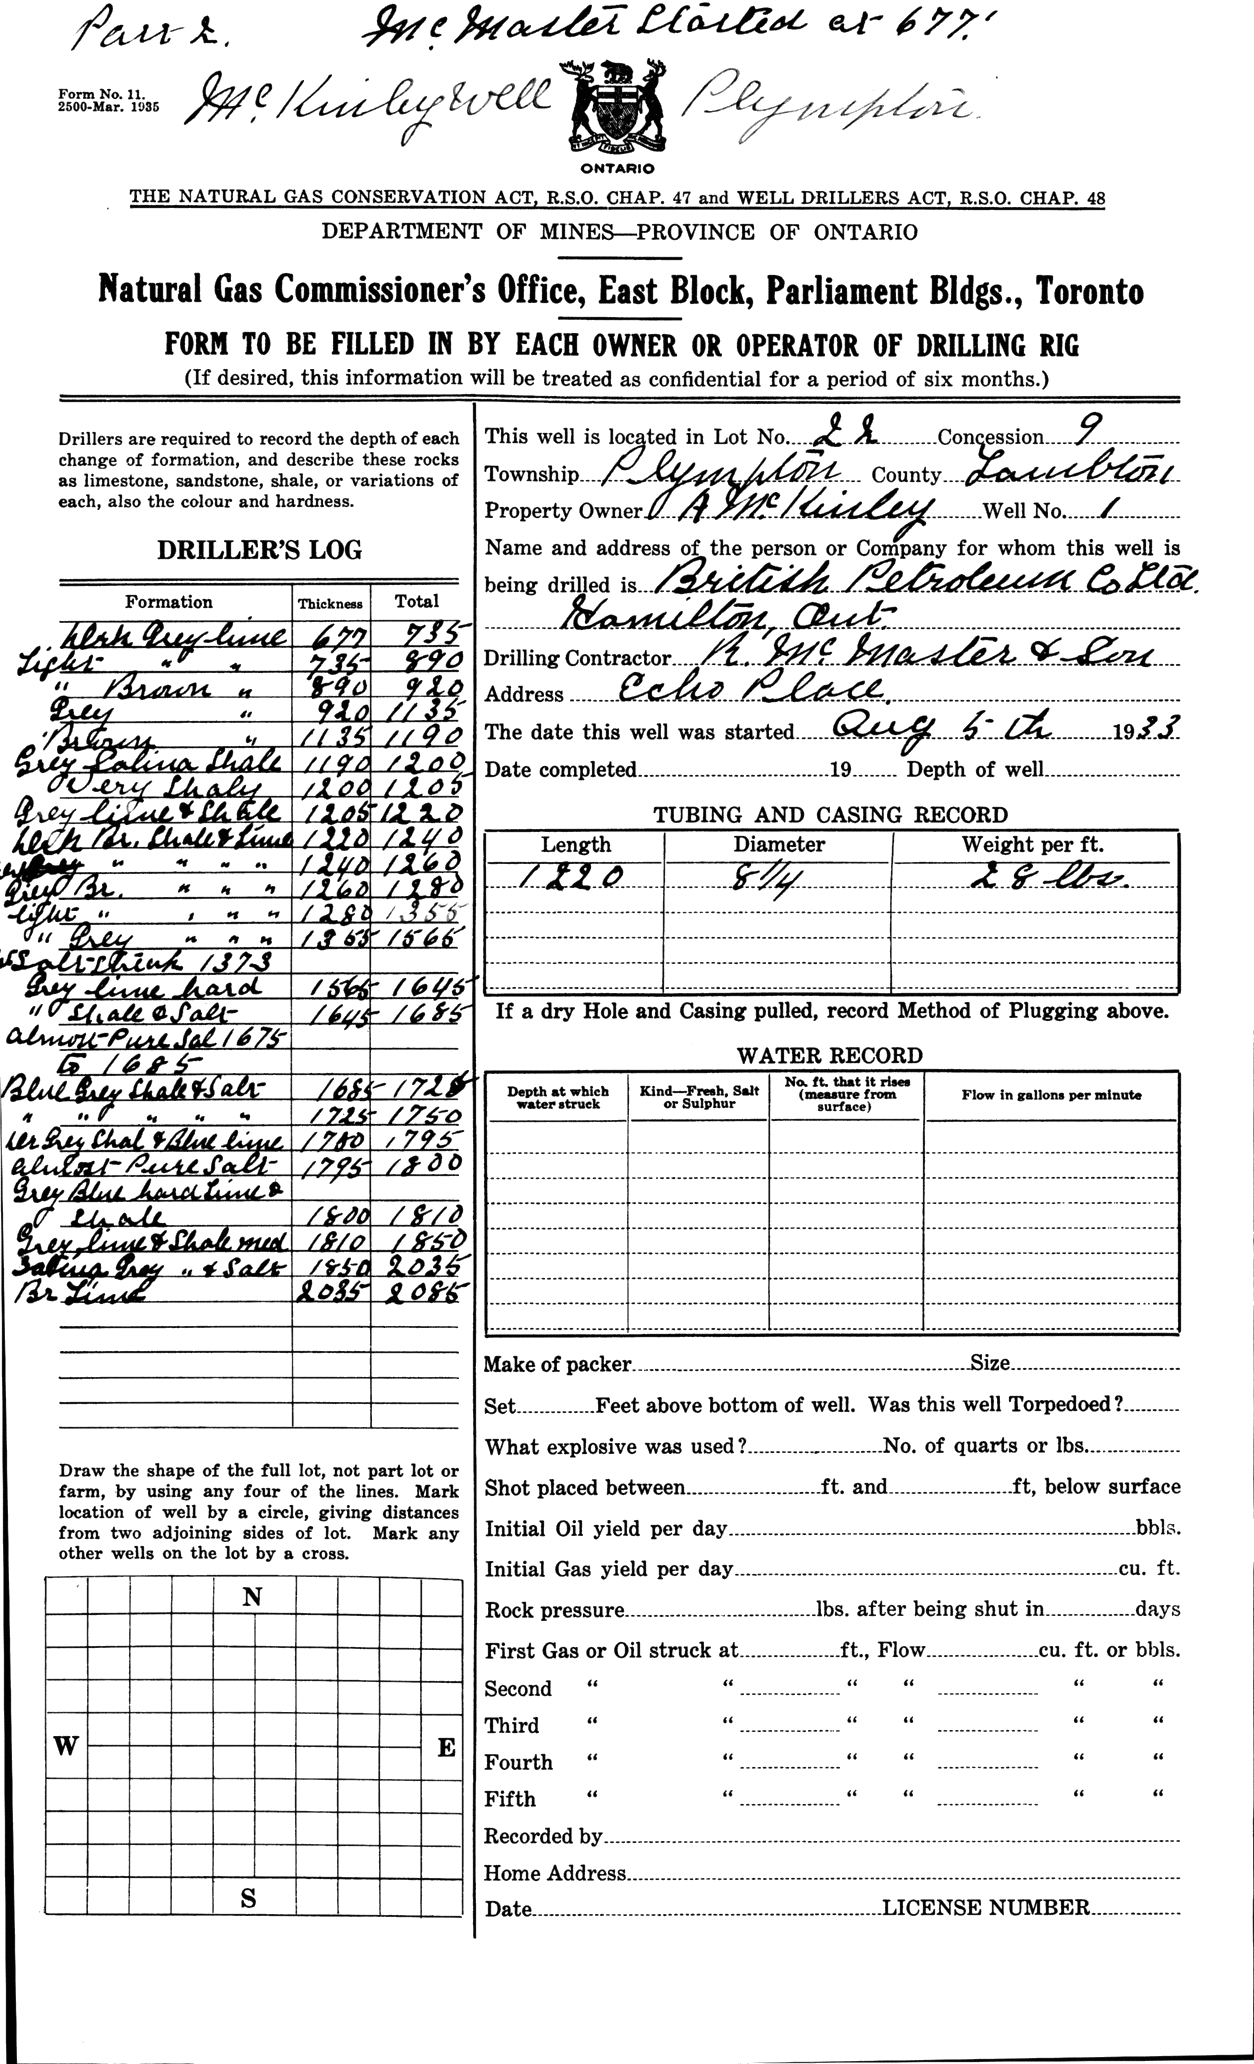 Part 2.      Mc Master Started at 677'
Form No. 11.
2500-Mar. 1935
McKinley Well      Plympton.
ONTARIO
THE NATURAL GAS CONSERVATION ACT, R.S.O. CHAP. 47 and WELL DRILLERS ACT, R.S.O. CHAP. 48
DEPARTMENT OF MINES—PROVINCE OF ONTARIO
Natural Gas Commissioner's Office, East Block, Parliament Bldgs., Toronto
FORM TO BE FILLED IN BY EACH OWNER OR OPERATOR OF DRILLING RIG
(If desired, this information will be treated as confidential for a period of six months.)
Drillers are required to record the depth of each
change of formation, and describe these rocks
as limestone, sandstone, shale, or variations of
each, also the colour and hardness.
DRILLER'S LOG
Formation Thickness Total
Derk Grey lime 677 735
Light " " 735 890
" Brown " 890 920
Grey " 920 1135
Brown " 1135 1190
Grey Salina Shale 1190 1200
Very Shaly 1200 1205
Grey lime & Shale 1205 1220
Derk Br. Shale & Lime 1220 1240
Grey " " " " 1240 1260
Grey Br. " " " 1260 1280
light " " " " 1280 1355
" Grey " " " 1355 1565
Salt Struck 1373
Grey lime hard 1565 1645
" Shale & Salt 1645 1685
almost Pure Sal 1675
to 1685
Blue Grey Shale & Salt 1685 1725
" " " " " 1725 1750
Grey Shal & Blue lime 1780 1795
almost Pure Salt 1795 1800
Grey Blue hard Lime &
Shale 1800 1810
Grey lime & Shale med 1810 1850
Salina Grey " & Salt 1850 2035
Br Lime 2035 2085
Draw the shape of the full lot, not part lot or
farm, by using any four of the lines. Mark
location of well by a circle, giving distances
from two adjoining sides of lot. Mark any
other wells on the lot by a cross.
N
W E
S
This well is located in Lot No. 22 Concession 9
Township Plympton County Lambton
Property Owner A McKinley Well No. 1
Name and address of the person or Company for whom this well is
being drilled is British Petroleum Co Ltd.
Hamilton, Ont.
Drilling Contractor R. Mc Master & Son
Address Echo Place.
The date this well was started Aug 5th 1933
Date completed 19 Depth of well
TUBING AND CASING RECORD
Length Diameter Weight per ft.
1220 8 1/4 28 lbs.
If a dry Hole and Casing pulled, record Method of Plugging above.
WATER RECORD
Depth at which water struck Kind—Fresh, Salt or Sulphur No. ft. that it rises (measure from surface) Flow in gallons per minute
Make of packer Size
Set Feet above bottom of well. Was this well Torpedoed?
What explosive was used? No. of quarts or lbs.
Shot placed between ft. and ft, below surface
Initial Oil yield per day bbls.
Initial Gas yield per day cu. ft.
Rock pressure lbs. after being shut in days
First Gas or Oil struck at ft., Flow cu. ft. or bbls.
Second " " " " " "
Third " " " " " "
Fourth " " " " " "
Fifth " " " " " "
Recorded by
Home Address
Date LICENSE NUMBER